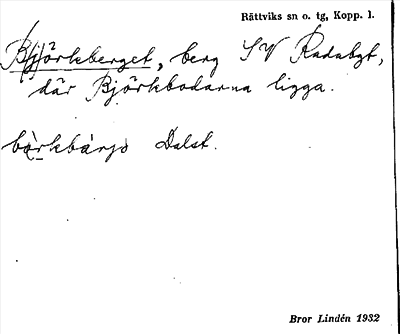 Rättviks sn o. tg, Kopp. l.
B(j)örkberget, berg SV Radabgt,
där Björkbodarna ligga.
bò̀rkbàrjo Dalst.
Bror Lindén 1932